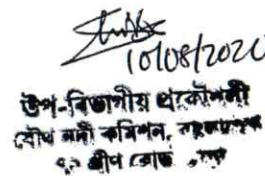 10/08/2020
উপ-বিভাগীয় প্রকৌশলী
যৌথ নদী কমিশন,
৭২ গ্রীণ রোড